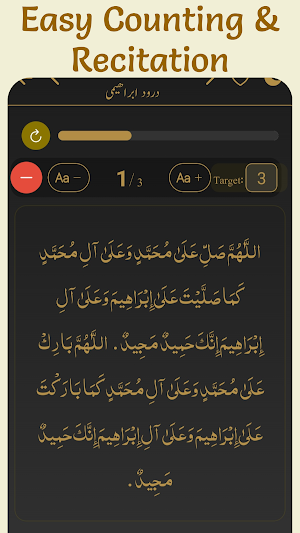 Easy Counting &
Recitation
درود ابراهیمی
Aa −
1/3
Aa +
Target:
3
اللَّهُمَّ صَلِّ عَلَىٰ مُحَمَّدٍ وَعَلَىٰ آلِ مُحَمَّدٍ
كَمَا صَلَّيْتَ عَلَىٰ إِبْرَاهِيمَ وَعَلَىٰ آلِ
إِبْرَاهِيمَ إِنَّكَ حَمِيدٌ مَجِيدٌ. اللَّهُمَّ بَارِكْ
عَلَىٰ مُحَمَّدٍ وَعَلَىٰ آلِ مُحَمَّدٍ كَمَا بَارَكْتَ
عَلَىٰ إِبْرَاهِيمَ وَعَلَىٰ آلِ إِبْرَاهِيمَ إِنَّكَ حَمِيدٌ
مَجِيدٌ.